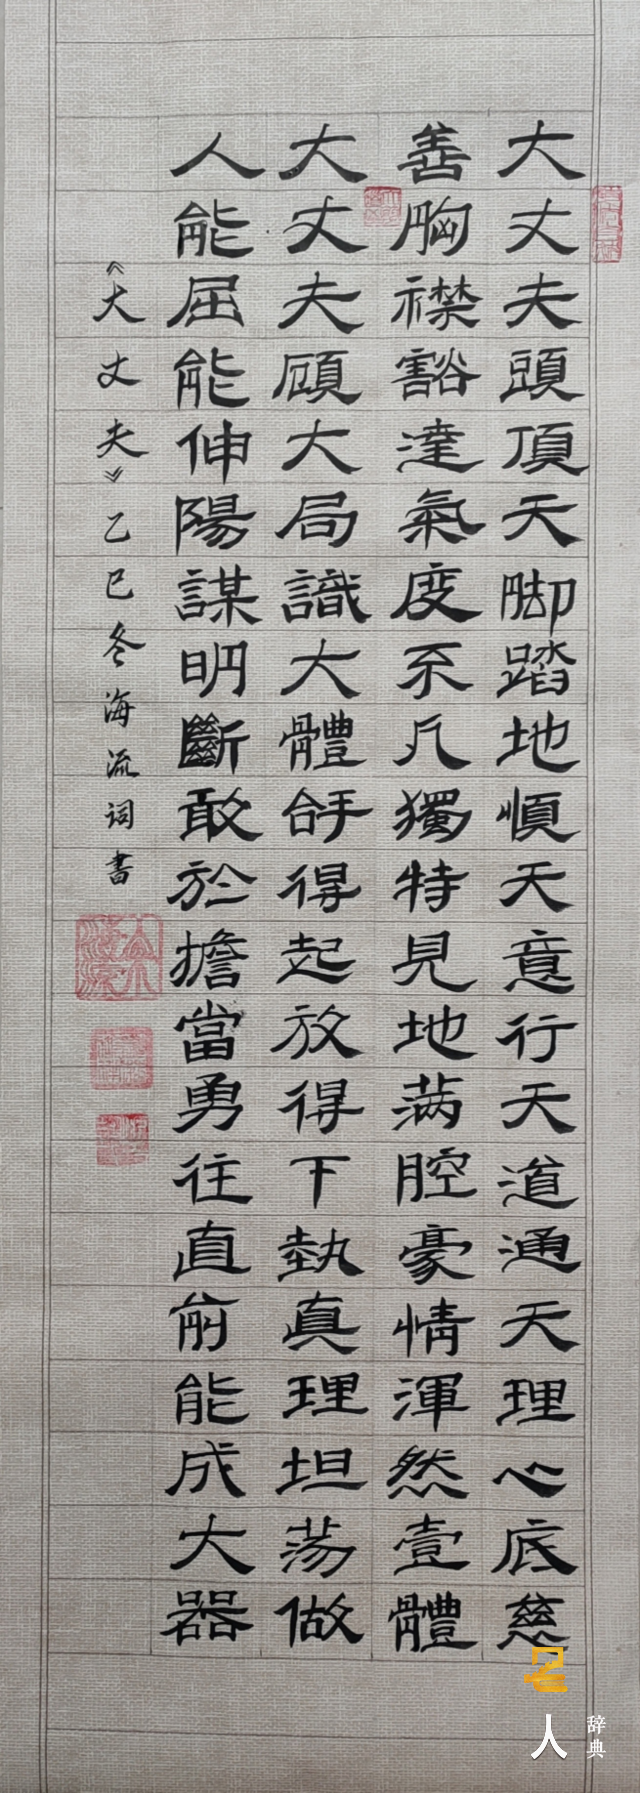 大丈夫頭頂天脚踏地順天意行天道通天理心底慈
善胸襟豁達氣度不凡獨特見地满腔豪情渾然壹體
大丈夫頋大局識大體拿得起放得下執真理坦荡做
人能屈能伸陽謀明斷敢於擔當勇往直前能成大器
《大丈夫》乙巳冬海流词書
名人
辞典